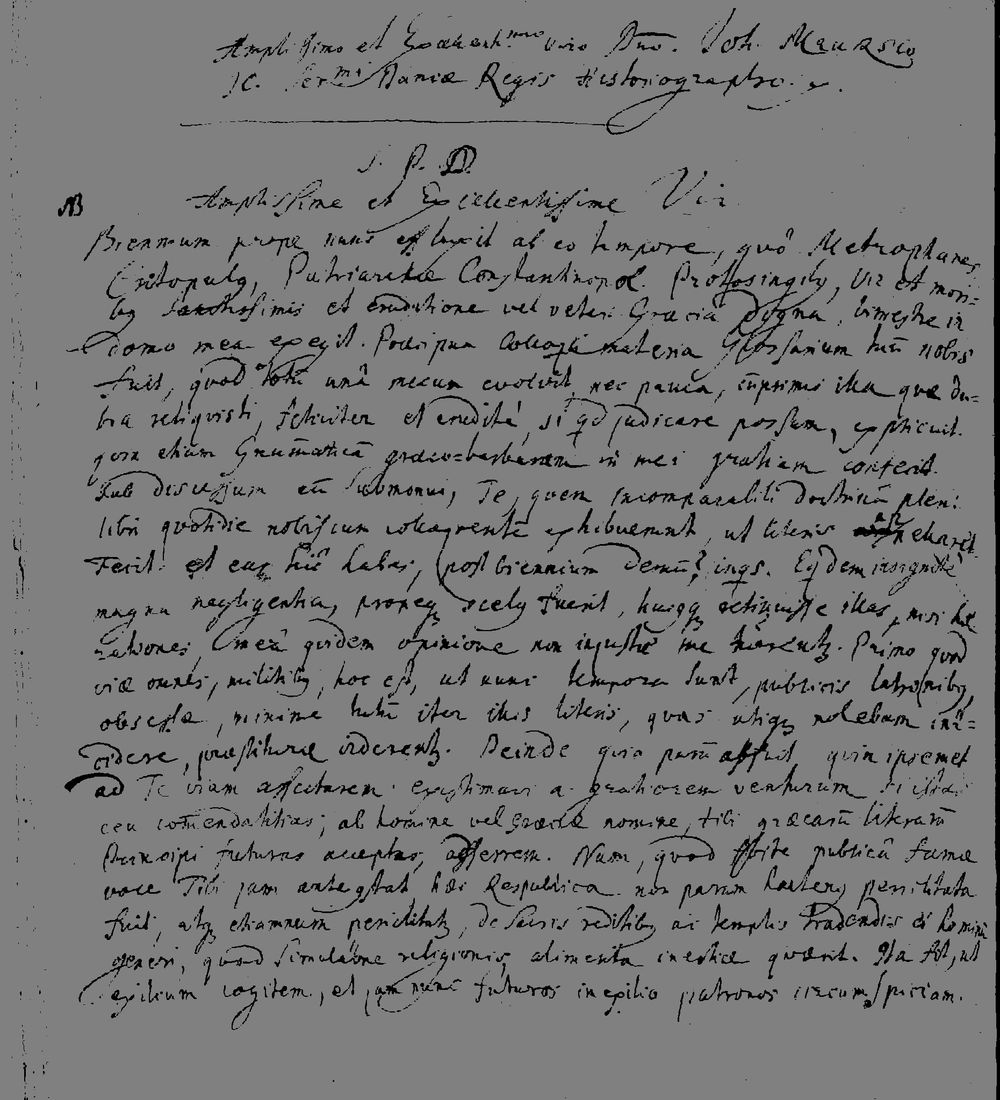 Amplissimo et Excellentmo viro Dno. Joh. Meursio
JC. Sermi Daniæ Regis Historiographo.
S. P. D
NB Amplissime et Excellentissime Vir
Biennium prope nunc effluxit ab eo tempore, quô Metrophanes
Critopulq, Patriarchæ Constantinopol. Protosingelq, Vir et mori-
bq sanctissimis et eruditione vel veteri Græciâ dignâ, bimestre in
domo mea exegit. Præcipua colloquii materia Glossarium tuũ nobis
fuit, quod totũ unâ mecum evolvit, nec pauca, inprimis illa quæ du-
bia reliquisti, feliciter et eruditè, si qd judicare possum, explicuit.
quin etiam Gram̃aticã græco-barbaram in mei gratiam confecit.
Sub discessum eũ submonui, Te, quem incomparabili doctrinâ pleni
libri quotidie nobiscum colloquentẽ exhibuerunt, ut literis
Fecit. et eas hic habes, (post biennium demũ? inqs. Eqdem
magna negligentia, propeq scelq fuerit, hucq retinuisse illas, nisi hæ
rationes, meâ quidem opinione non injustè me Primo quod
viæ omnes, militibq, hoc est, ut nunc tempora sunt, publicis latronibq,
obsessæ, minime tutũ iter illis literis, quas utiq nolebam
cidere, præstituræ viderentq. Deinde quia parũ abfuit, quin ipsemet
ad Te viam affectarem. existimavi a. gratiorem venturum si istas
ceu com̃endatitias, ab homine vel Græciæ nomine, tibi græcarũ literarũ
Principi futurus acceptus, afferrem. Nam, quod sponte publicâ famæ
voce Tibi jam ante constat hæc Respublica non parum hactenq periclitata
fuit, atq etiamnum periclitatq, de sacris reditibq ac templis tradendis ei hominũ
generi, quod simulatione religionis, alimenta inertiæ quærit. Ita fit, ut
exilium cogitem, et jam nunc futuros in exilio patronos circumspiciam.